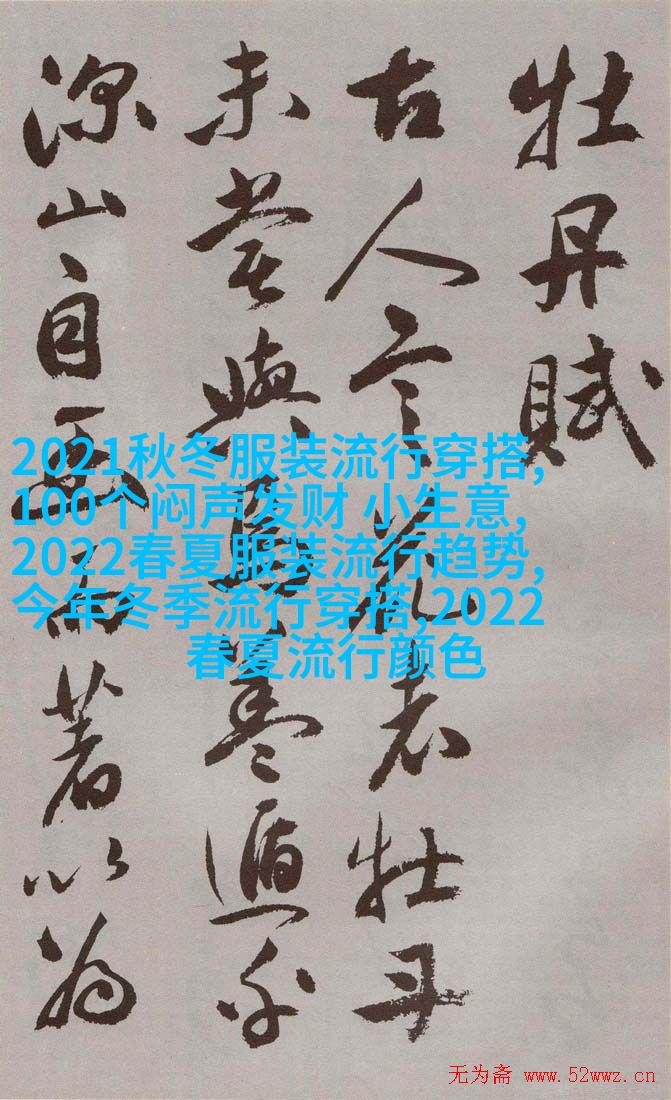 牡丹賦
古人言花者牡丹
未嘗與焉蓋遁於
深山自幽而著以為
2021秋冬服装流行穿搭,
100个闷声发财 小生意,
2022春夏服装流行趋势,
今年冬季流行穿搭,2022
春夏流行颜色
无为斋 www.52wwz.cn